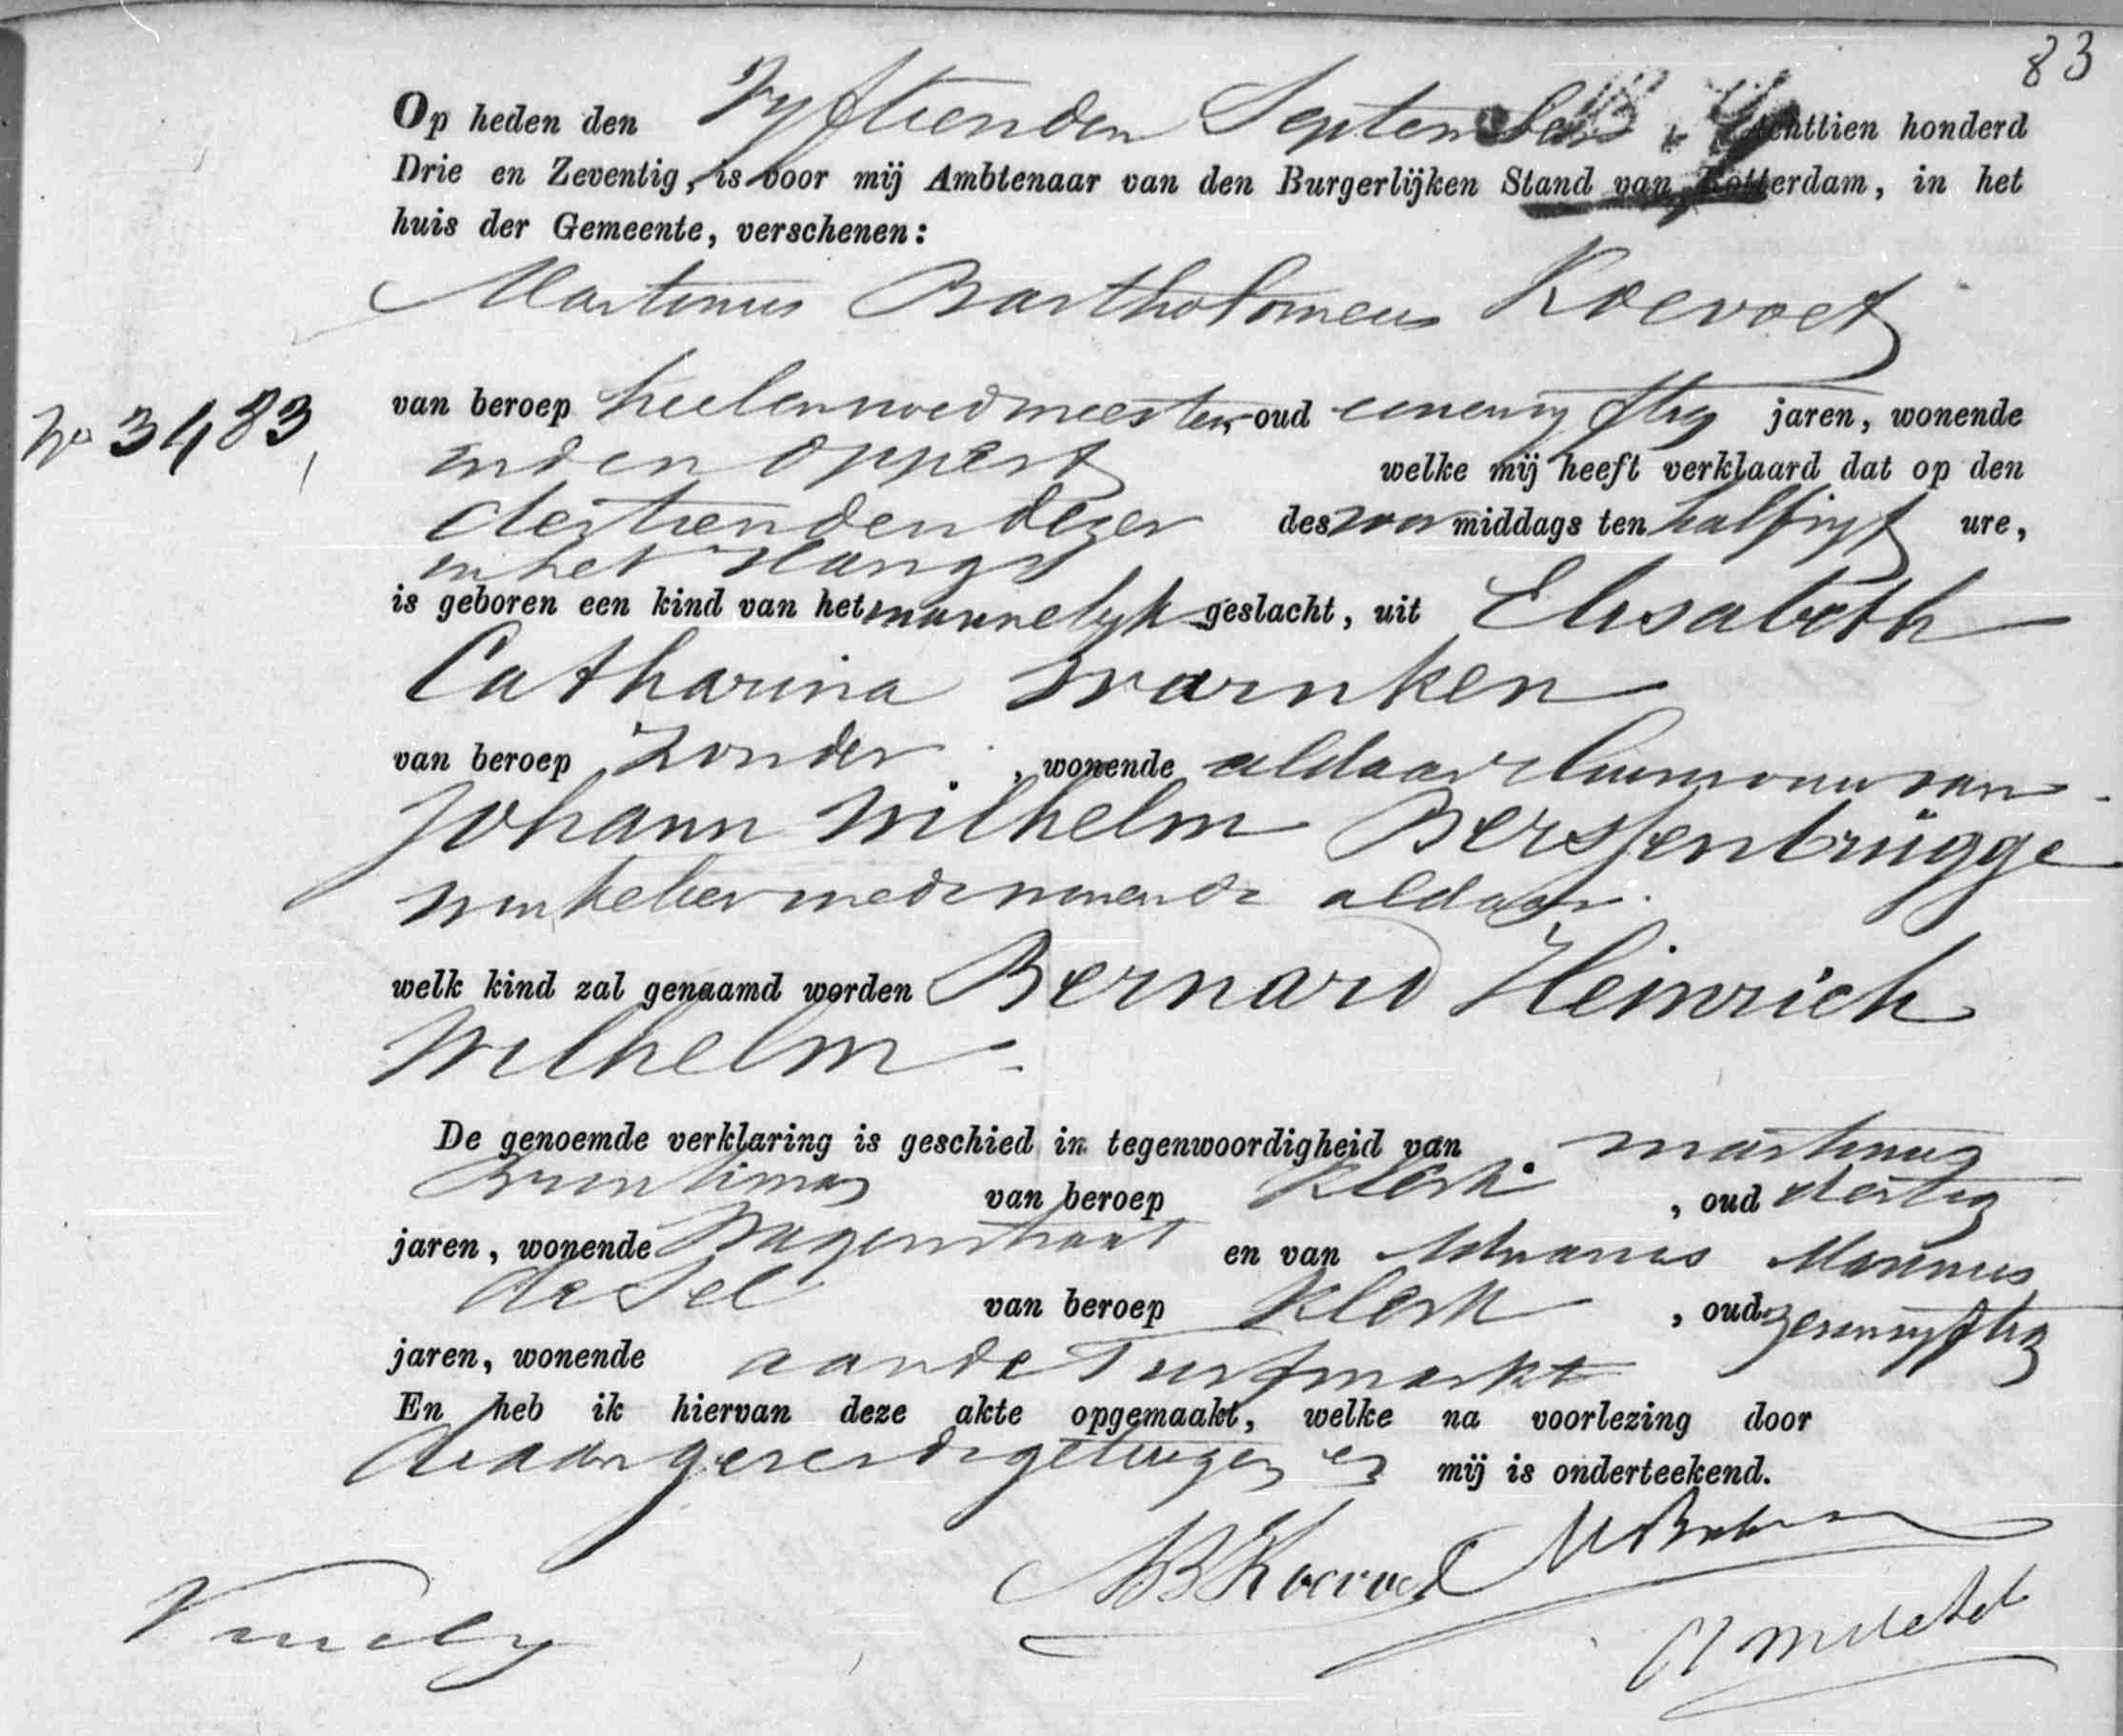 83
Op heden den Vyftienden September Achttien honderd
Drie en Zeventig, is voor mij Ambtenaar van den Burgerlijken Stand van Rotterdam, in het
huis der Gemeente, verschenen:
Martinus Bartholomeus Koevoet
No 3483,
van beroep heelenvroedmeester, oud eenenvyftig jaren, wonende
inden Oppert welke mij heeft verklaard dat op den
dertienden dezer des voormiddags ten halfvyf ure,
in het
is geboren een kind van het mannelyk geslacht, uit Elisabeth
Catharina Warnken
van beroep zonder, wonende aldaar huisvrouw van
Johann Wilhelm Berssenbrügge
winkelier mede wonende aldaar.
welk kind zal genaamd worden Bernard Heinrich
Wilhelm
De genoemde verklaring is geschied in tegenwoordigheid van Martinus
van beroep Klerk, oud dertig
jaren, wonende Wagenstraat en van Adrianus Marinus
de Sel van beroep Klerk, oud zesenvyftig
jaren, wonende aan de Turfmarkt
En heb ik hiervan deze akte opgemaakt, welke na voorlezing door
den aangever de getuigen en mij is onderteekend.
MB Koevoet
AM de Sel